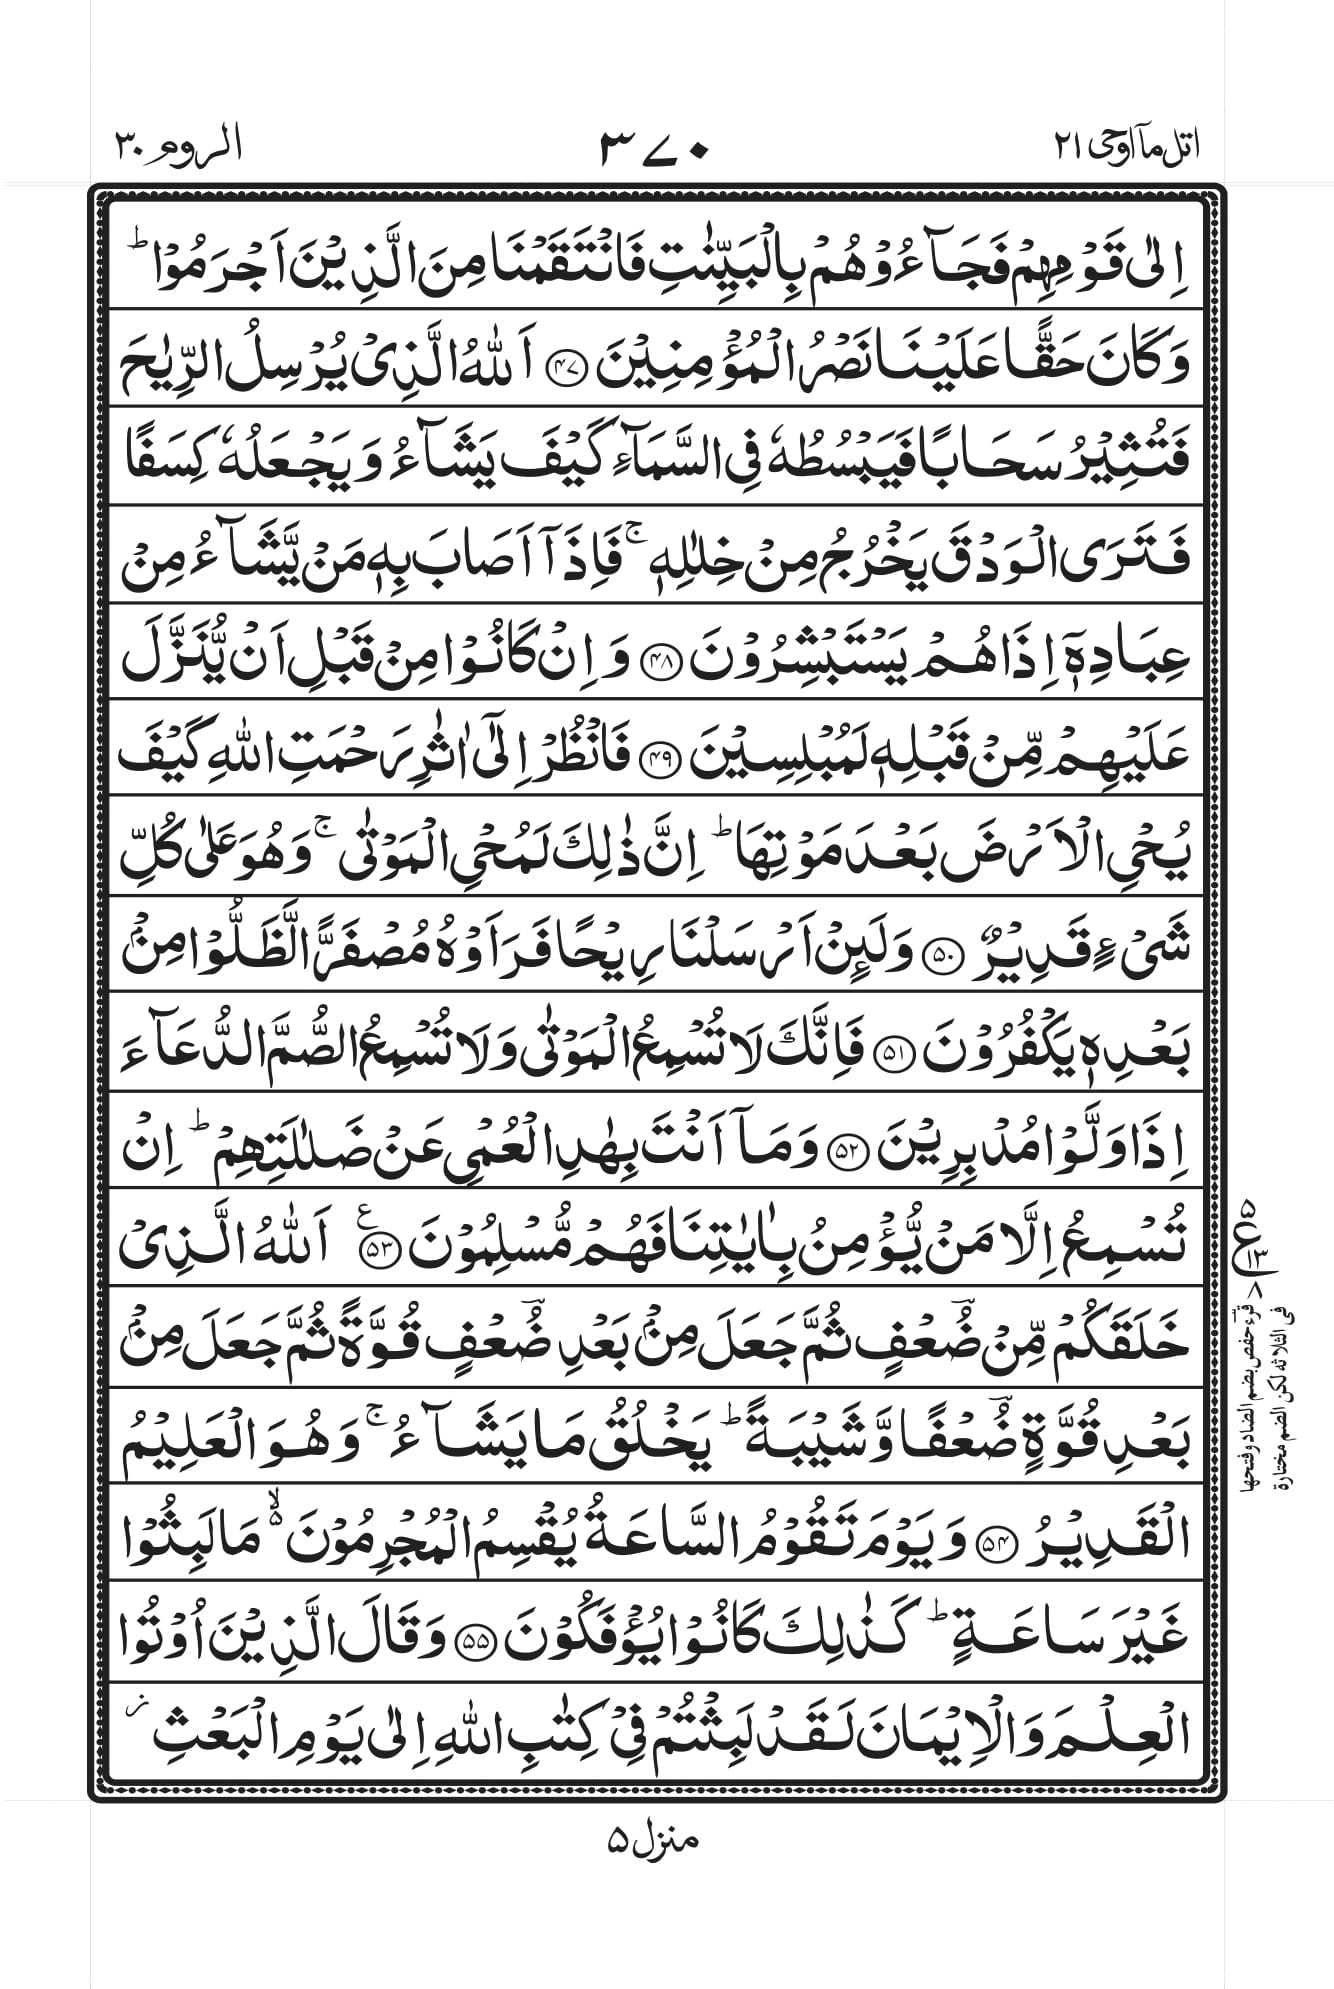 اتل مآ اوحی ۲۱
۳۷۰
الروم ۳۰
اِلٰى قَوْمِهِمْ فَجَآءُوْهُمْ بِالْبَيِّنٰتِ فَانْتَقَمْنَا مِنَ الَّذِيْنَ اَجْرَمُوْا ؕ
وَكَانَ حَقًّا عَلَيْنَا نَصْرُ الْمُؤْمِنِيْنَ ﴿۴۷﴾ اَللّٰهُ الَّذِىْ يُرْسِلُ الرِّيٰحَ
فَتُثِيْرُ سَحَابًا فَيَبْسُطُهٗ فِى السَّمَآءِ كَيْفَ يَشَآءُ وَيَجْعَلُهٗ كِسَفًا
فَتَرَى الْوَدْقَ يَخْرُجُ مِنْ خِلٰلِهٖ ۚ فَاِذَاۤ اَصَابَ بِهٖ مَنْ يَّشَآءُ مِنْ
عِبَادِهٖۤ اِذَا هُمْ يَسْتَبْشِرُوْنَ ﴿۴۸﴾ وَاِنْ كَانُوْا مِنْ قَبْلِ اَنْ يُّنَزَّلَ
عَلَيْهِمْ مِّنْ قَبْلِهٖ لَمُبْلِسِيْنَ ﴿۴۹﴾ فَانْظُرْ اِلٰٓى اٰثٰرِ رَحْمَتِ اللّٰهِ كَيْفَ
يُحْىِ الْاَرْضَ بَعْدَ مَوْتِهَا ؕ اِنَّ ذٰلِكَ لَمُحْىِ الْمَوْتٰى ۚ وَهُوَ عَلٰى كُلِّ
شَىْءٍ قَدِيْرٌ ﴿۵۰﴾ وَلَئِنْ اَرْسَلْنَا رِيْحًا فَرَاَوْهُ مُصْفَرًّا لَّظَلُّوْا مِنْۢ
بَعْدِهٖ يَكْفُرُوْنَ ﴿۵۱﴾ فَاِنَّكَ لَا تُسْمِعُ الْمَوْتٰى وَلَا تُسْمِعُ الصُّمَّ الدُّعَآءَ
اِذَا وَلَّوْا مُدْبِرِيْنَ ﴿۵۲﴾ وَمَاۤ اَنْتَ بِهٰدِ الْعُمْىِ عَنْ ضَلٰلَتِهِمْ ؕ اِنْ
تُسْمِعُ اِلَّا مَنْ يُّؤْمِنُ بِاٰيٰتِنَا فَهُمْ مُّسْلِمُوْنَ ﴿۵۳﴾ ع اَللّٰهُ الَّذِىْ
خَلَقَكُمْ مِّنْ ضُؔعْفٍ ثُمَّ جَعَلَ مِنْۢ بَعْدِ ضُؔعْفٍ قُوَّةً ثُمَّ جَعَلَ مِنْۢ
بَعْدِ قُوَّةٍ ضُؔعْفًا وَّشَيْبَةً ؕ يَخْلُقُ مَا يَشَآءُ ۚ وَهُوَ الْعَلِيْمُ
الْقَدِيْرُ ﴿۵۴﴾ وَيَوْمَ تَقُوْمُ السَّاعَةُ يُقْسِمُ الْمُجْرِمُوْنَ ۙ۬ مَا لَبِثُوْا
غَيْرَ سَاعَةٍ ؕ كَذٰلِكَ كَانُوْا يُؤْفَكُوْنَ ﴿۵۵﴾ وَقَالَ الَّذِيْنَ اُوْتُوا
الْعِلْمَ وَالْاِيْمَانَ لَقَدْ لَبِثْتُمْ فِىْ كِتٰبِ اللّٰهِ اِلٰى يَوْمِ الْبَعْثِ ز
۵
ع
۱۳
قرء حفص بضم الضاد وفتحها
فى الثلاثة لكن الضم مختارة
منزل ۵